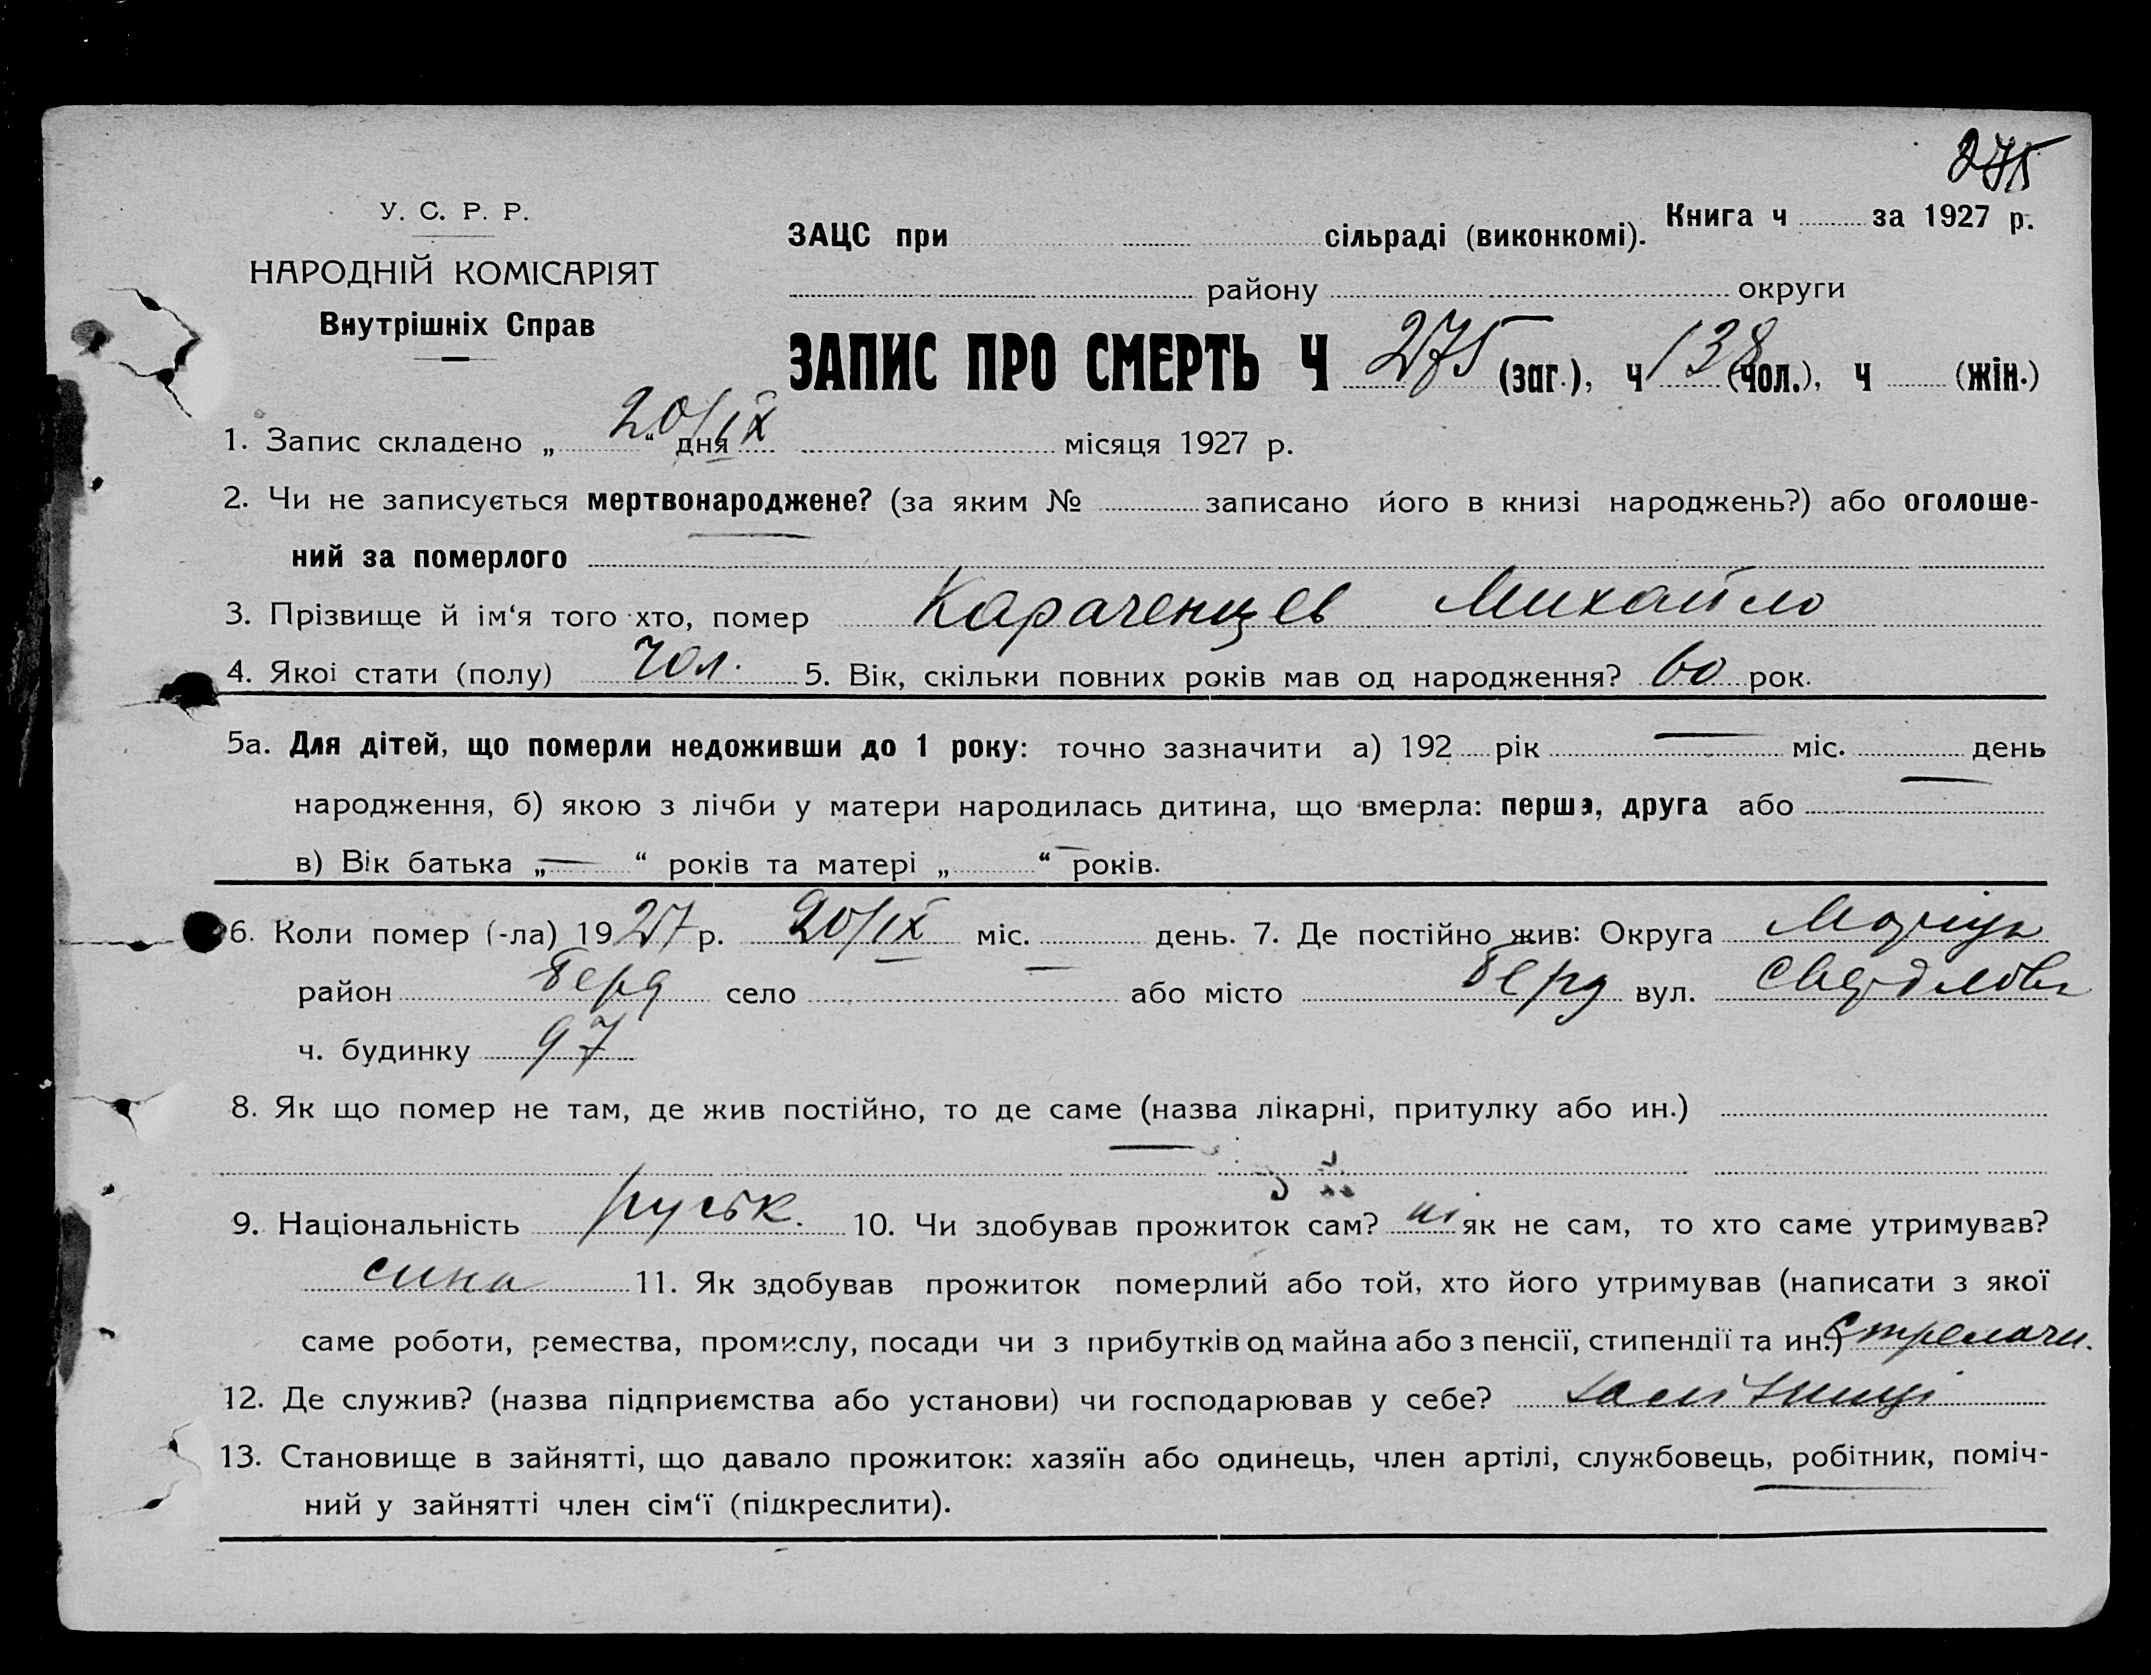 275
У. С. Р. Р.
НАРОДНІЙ КОМІСАРІЯТ
Внутрішніх Справ
ЗАЦС при сільраді (виконкомі). Книга ч за 1927 р.
району округи
ЗАПИС ПРО СМЕРТЬ Ч 275 (заг.), ч 138 (чол.), ч (жін.)
1. Запис складено „ 20/IX “ дня місяця 1927 р.
2. Чи не записується мертвонароджене? (за яким № записано його в книзі народжень?) або оголоше-
ний за померлого —
3. Прізвище й ім‘я того хто, помер Караченцев Михайло
4. Якої стати (полу) чол. 5. Вік, скільки повних років мав од народження? 60 рок.
5а. Для дітей, що померли недоживши до 1 року: точно зазначити а) 192 рік — міс. — день
народження, б) якою з лічби у матери народилась дитина, що вмерла: перша, друга або
в) Вік батька „ — “ років та матері „ — “ років.
6. Коли помер (-ла) 1927 р. 20/IX міс. день. 7. Де постійно жив: Округа Маріуп
район Берд село — або місто Берд вул. Свердлова
ч. будинку 97
8. Як що помер не там, де жив постійно, то де саме (назва лікарні, притулку або ин.)
—
9. Національність руськ. 10. Чи здобував прожиток сам? ні як не сам, то хто саме утримував?
сина 11. Як здобував прожиток померлий або той, хто його утримував (написати з якої
саме роботи, ремества, промислу, посади чи з прибутків од майна або з пенсії, стипендії та ин.)
12. Де служив? (назва підприємства або установи) чи господарював у себе?
13. Становище в зайнятті, що давало прожиток: хазяїн або одинець, член артілі, службовець, робітник, поміч-
ний у зайнятті член сім‘ї (підкреслити).